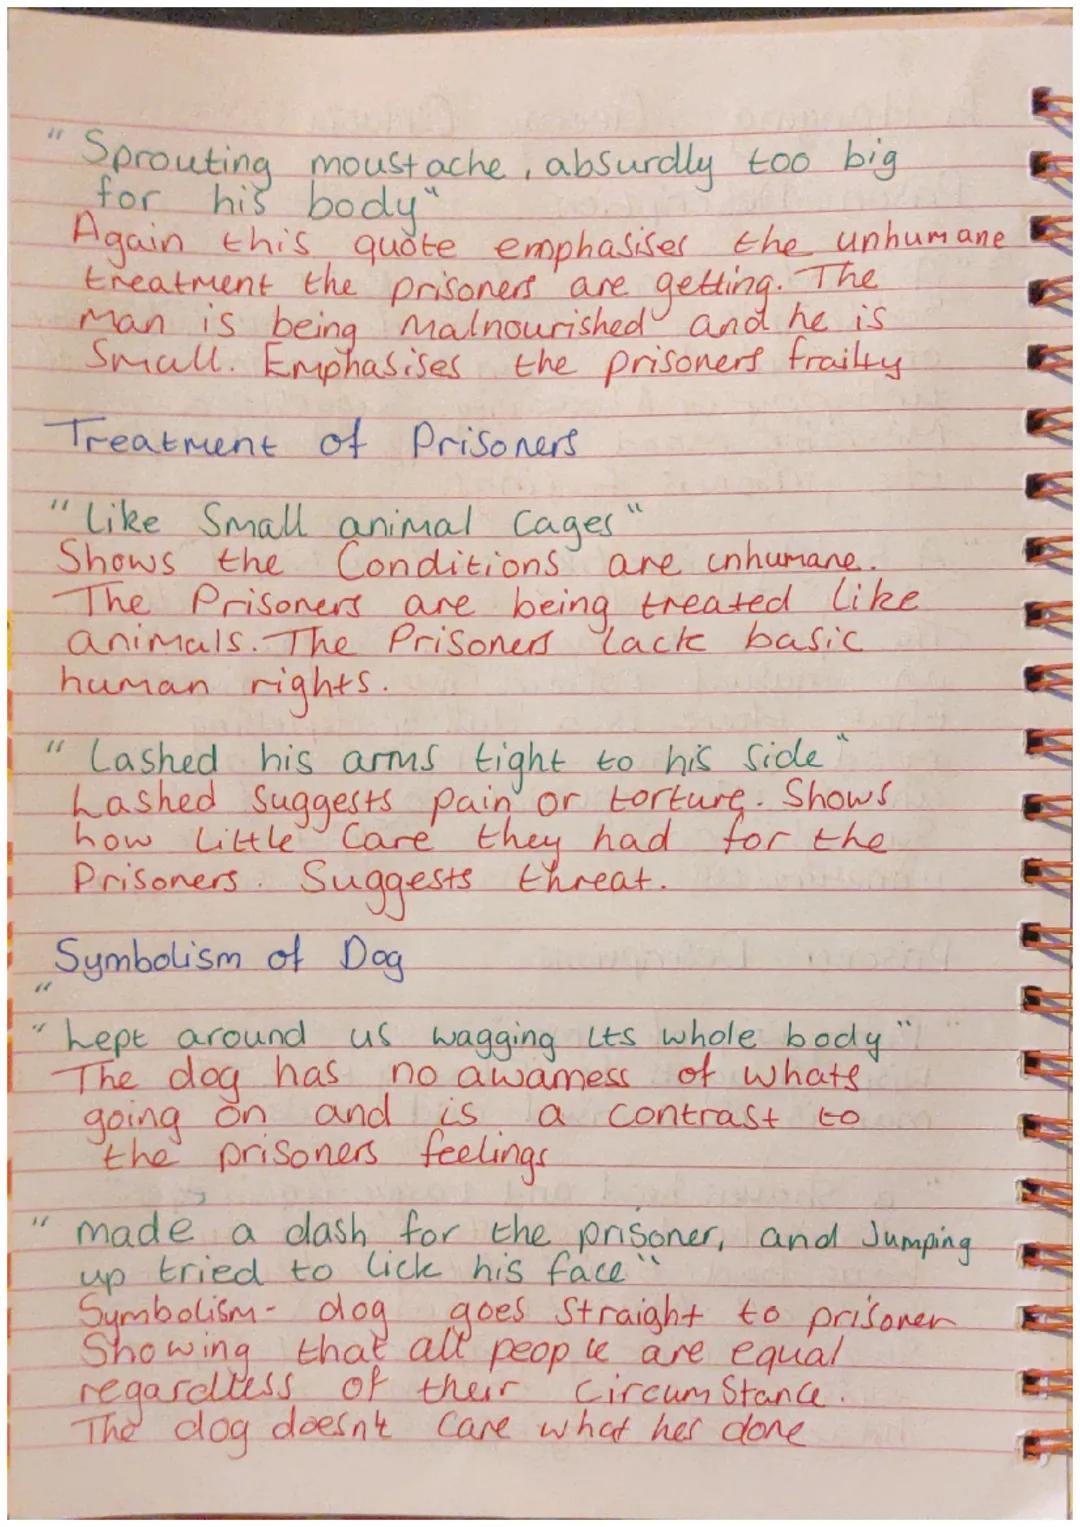 "Sprouting moustache, absurdly too big
for his body"
Again this quote emphasises the unhumane
treatment the prisoners are getting. The
Man is being Malnourished and he is
Small. Emphasises the prisoners frailty
Treatment of Prisoners
"like Small animal cages"
Shows the Conditions are inhumane.
The Prisoners are being treated like
animals. The Prisoners lack basic
human rights.
"Lashed his arms tight to his side"
Lashed suggests pain or torture. Shows
how little care they had for the
Prisoners. Suggests threat.
Symbolism of Dog
"
"kept around us wagging its whole body"
The dog has no awarness of whats
going on and is a contrast to
the prisoners feelings
"made a dash for the prisoner, and Jumping
up tried to lick his face"
Symbolism - dog goes straight to prisoner
Showing that all people are equal
regardless of their circumstance.
The dog doesn't care what hes done